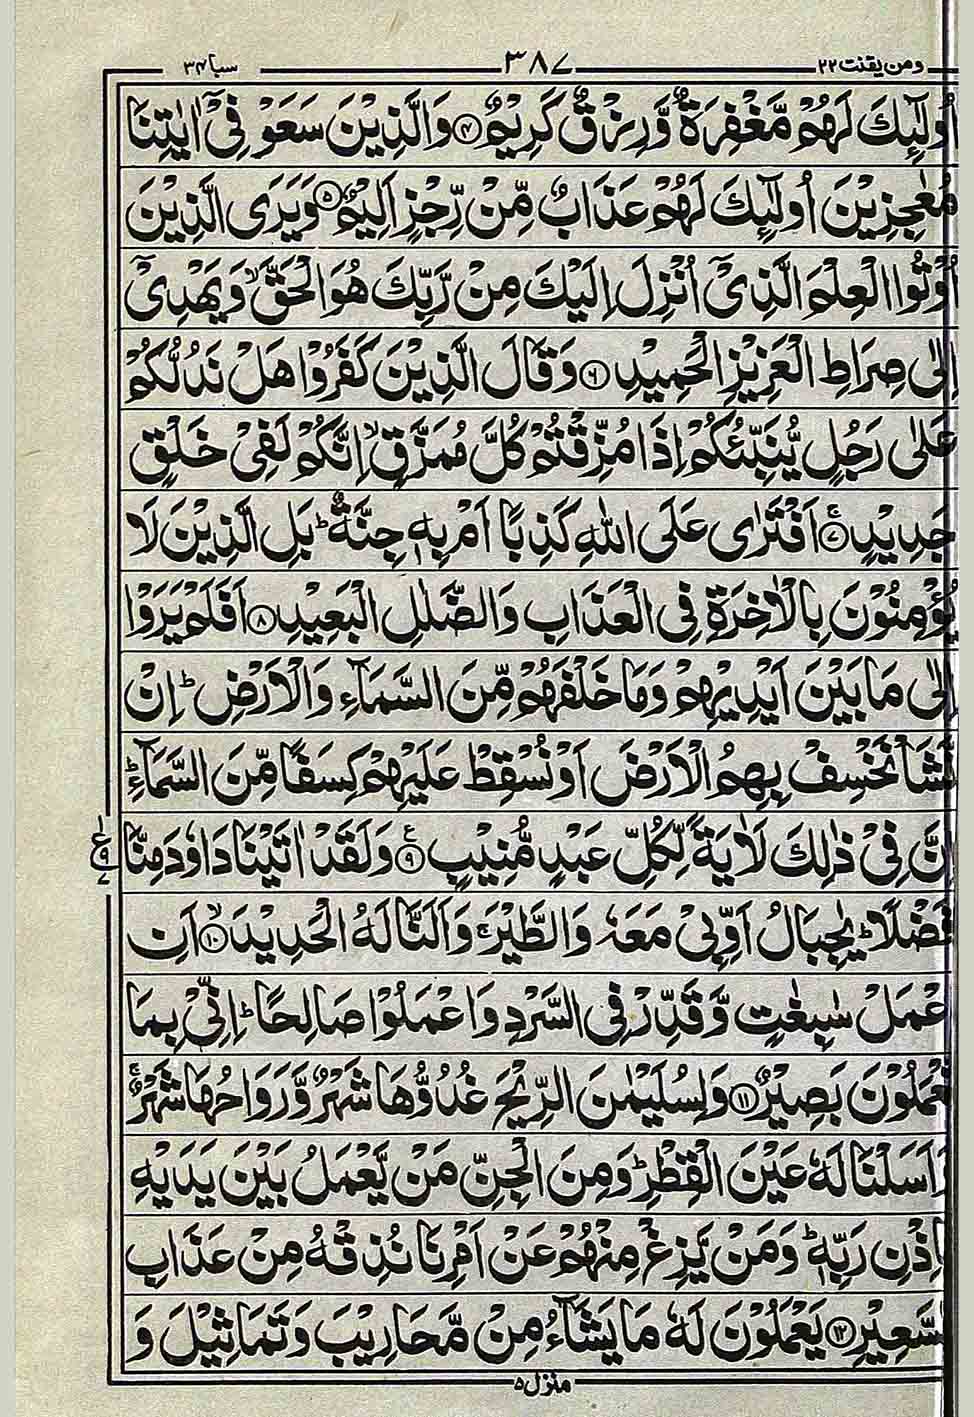 ومن يقنت ٢٢ ٣٨٧ سبا ٣٤
اُولٰٓئِكَ لَهُمْ مَّغْفِرَةٌ وَّرِزْقٌ كَرِيْمٌ ۴ وَالَّذِيْنَ سَعَوْ فِىْٓ اٰيٰتِنَا
مُعٰجِزِيْنَ اُولٰٓئِكَ لَهُمْ عَذَابٌ مِّنْ رِّجْزٍ اَلِيْمٌ ۵ وَيَرَى الَّذِيْنَ
اُوْتُوا الْعِلْمَ الَّذِىْٓ اُنْزِلَ اِلَيْكَ مِنْ رَّبِّكَ هُوَ الْحَقَّ ۙ وَيَهْدِىْٓ
اِلٰى صِرَاطِ الْعَزِيْزِ الْحَمِيْدِ ۶ وَقَالَ الَّذِيْنَ كَفَرُوْا هَلْ نَدُلُّكُمْ
عَلٰى رَجُلٍ يُّنَبِّئُكُمْ اِذَا مُزِّقْتُمْ كُلَّ مُمَزَّقٍ ۙ اِنَّكُمْ لَفِىْ خَلْقٍ
جَدِيْدٍ ۷ اَفْتَرٰى عَلَى اللّٰهِ كَذِبًا اَمْ بِهٖ جِنَّةٌ ؕ بَلِ الَّذِيْنَ لَا
يُؤْمِنُوْنَ بِالْاٰخِرَةِ فِى الْعَذَابِ وَالضَّلٰلِ الْبَعِيْدِ ۸ اَفَلَمْ يَرَوْا
اِلٰى مَا بَيْنَ اَيْدِيْهِمْ وَمَا خَلْفَهُمْ مِّنَ السَّمَآءِ وَالْاَرْضِ ؕ اِنْ
نَّشَاْ نَخْسِفْ بِهِمُ الْاَرْضَ اَوْ نُسْقِطْ عَلَيْهِمْ كِسَفًا مِّنَ السَّمَآءِ ؕ
اِنَّ فِىْ ذٰلِكَ لَاٰيَةً لِّكُلِّ عَبْدٍ مُّنِيْبٍ ۹ وَلَقَدْ اٰتَيْنَا دَاوٗدَ مِنَّا
ع ۹
فَضْلًا ؕ يٰجِبَالُ اَوِّبِىْ مَعَهٗ وَالطَّيْرَ ۚ وَاَلَنَّا لَهُ الْحَدِيْدَ ۙ ۱۰ اَنِ
اعْمَلْ سٰبِغٰتٍ وَّقَدِّرْ فِى السَّرْدِ وَاعْمَلُوْا صَالِحًا ؕ اِنِّىْ بِمَا
تَعْمَلُوْنَ بَصِيْرٌ ۱۱ وَلِسُلَيْمٰنَ الرِّيْحَ غُدُوُّهَا شَهْرٌ وَّرَوَاحُهَا شَهْرٌ ۚ
وَاَسَلْنَا لَهٗ عَيْنَ الْقِطْرِ ؕ وَمِنَ الْجِنِّ مَنْ يَّعْمَلُ بَيْنَ يَدَيْهِ
بِاِذْنِ رَبِّهٖ ؕ وَمَنْ يَّزِغْ مِنْهُمْ عَنْ اَمْرِنَا نُذِقْهُ مِنْ عَذَابِ
السَّعِيْرِ ۱۲ يَعْمَلُوْنَ لَهٗ مَا يَشَآءُ مِنْ مَّحَارِيْبَ وَتَمَاثِيْلَ وَ
منزل ۵